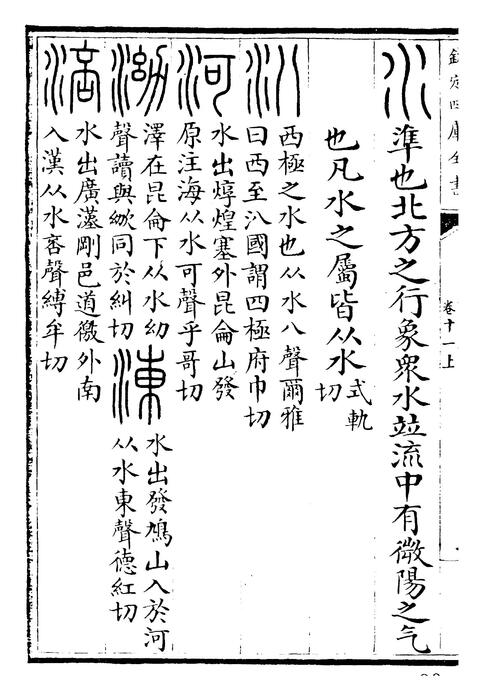 欽定四庫全書
卷十一上
水準也北方之行象衆水竝流中有微陽之气
也凡水之屬皆从水式軌
切
汃西極之水也从水八聲爾雅
曰西至汃國謂四極府巾切
河水出焞煌塞外昆侖山發
原注海从水可聲乎哥切
泑澤在昆侖下从水幼
聲讀與同於糾切
涷水出發鳩山入於河
从水東聲德紅切
涪水出廣剛邑道徼外南
入漢从水咅聲縛牟切